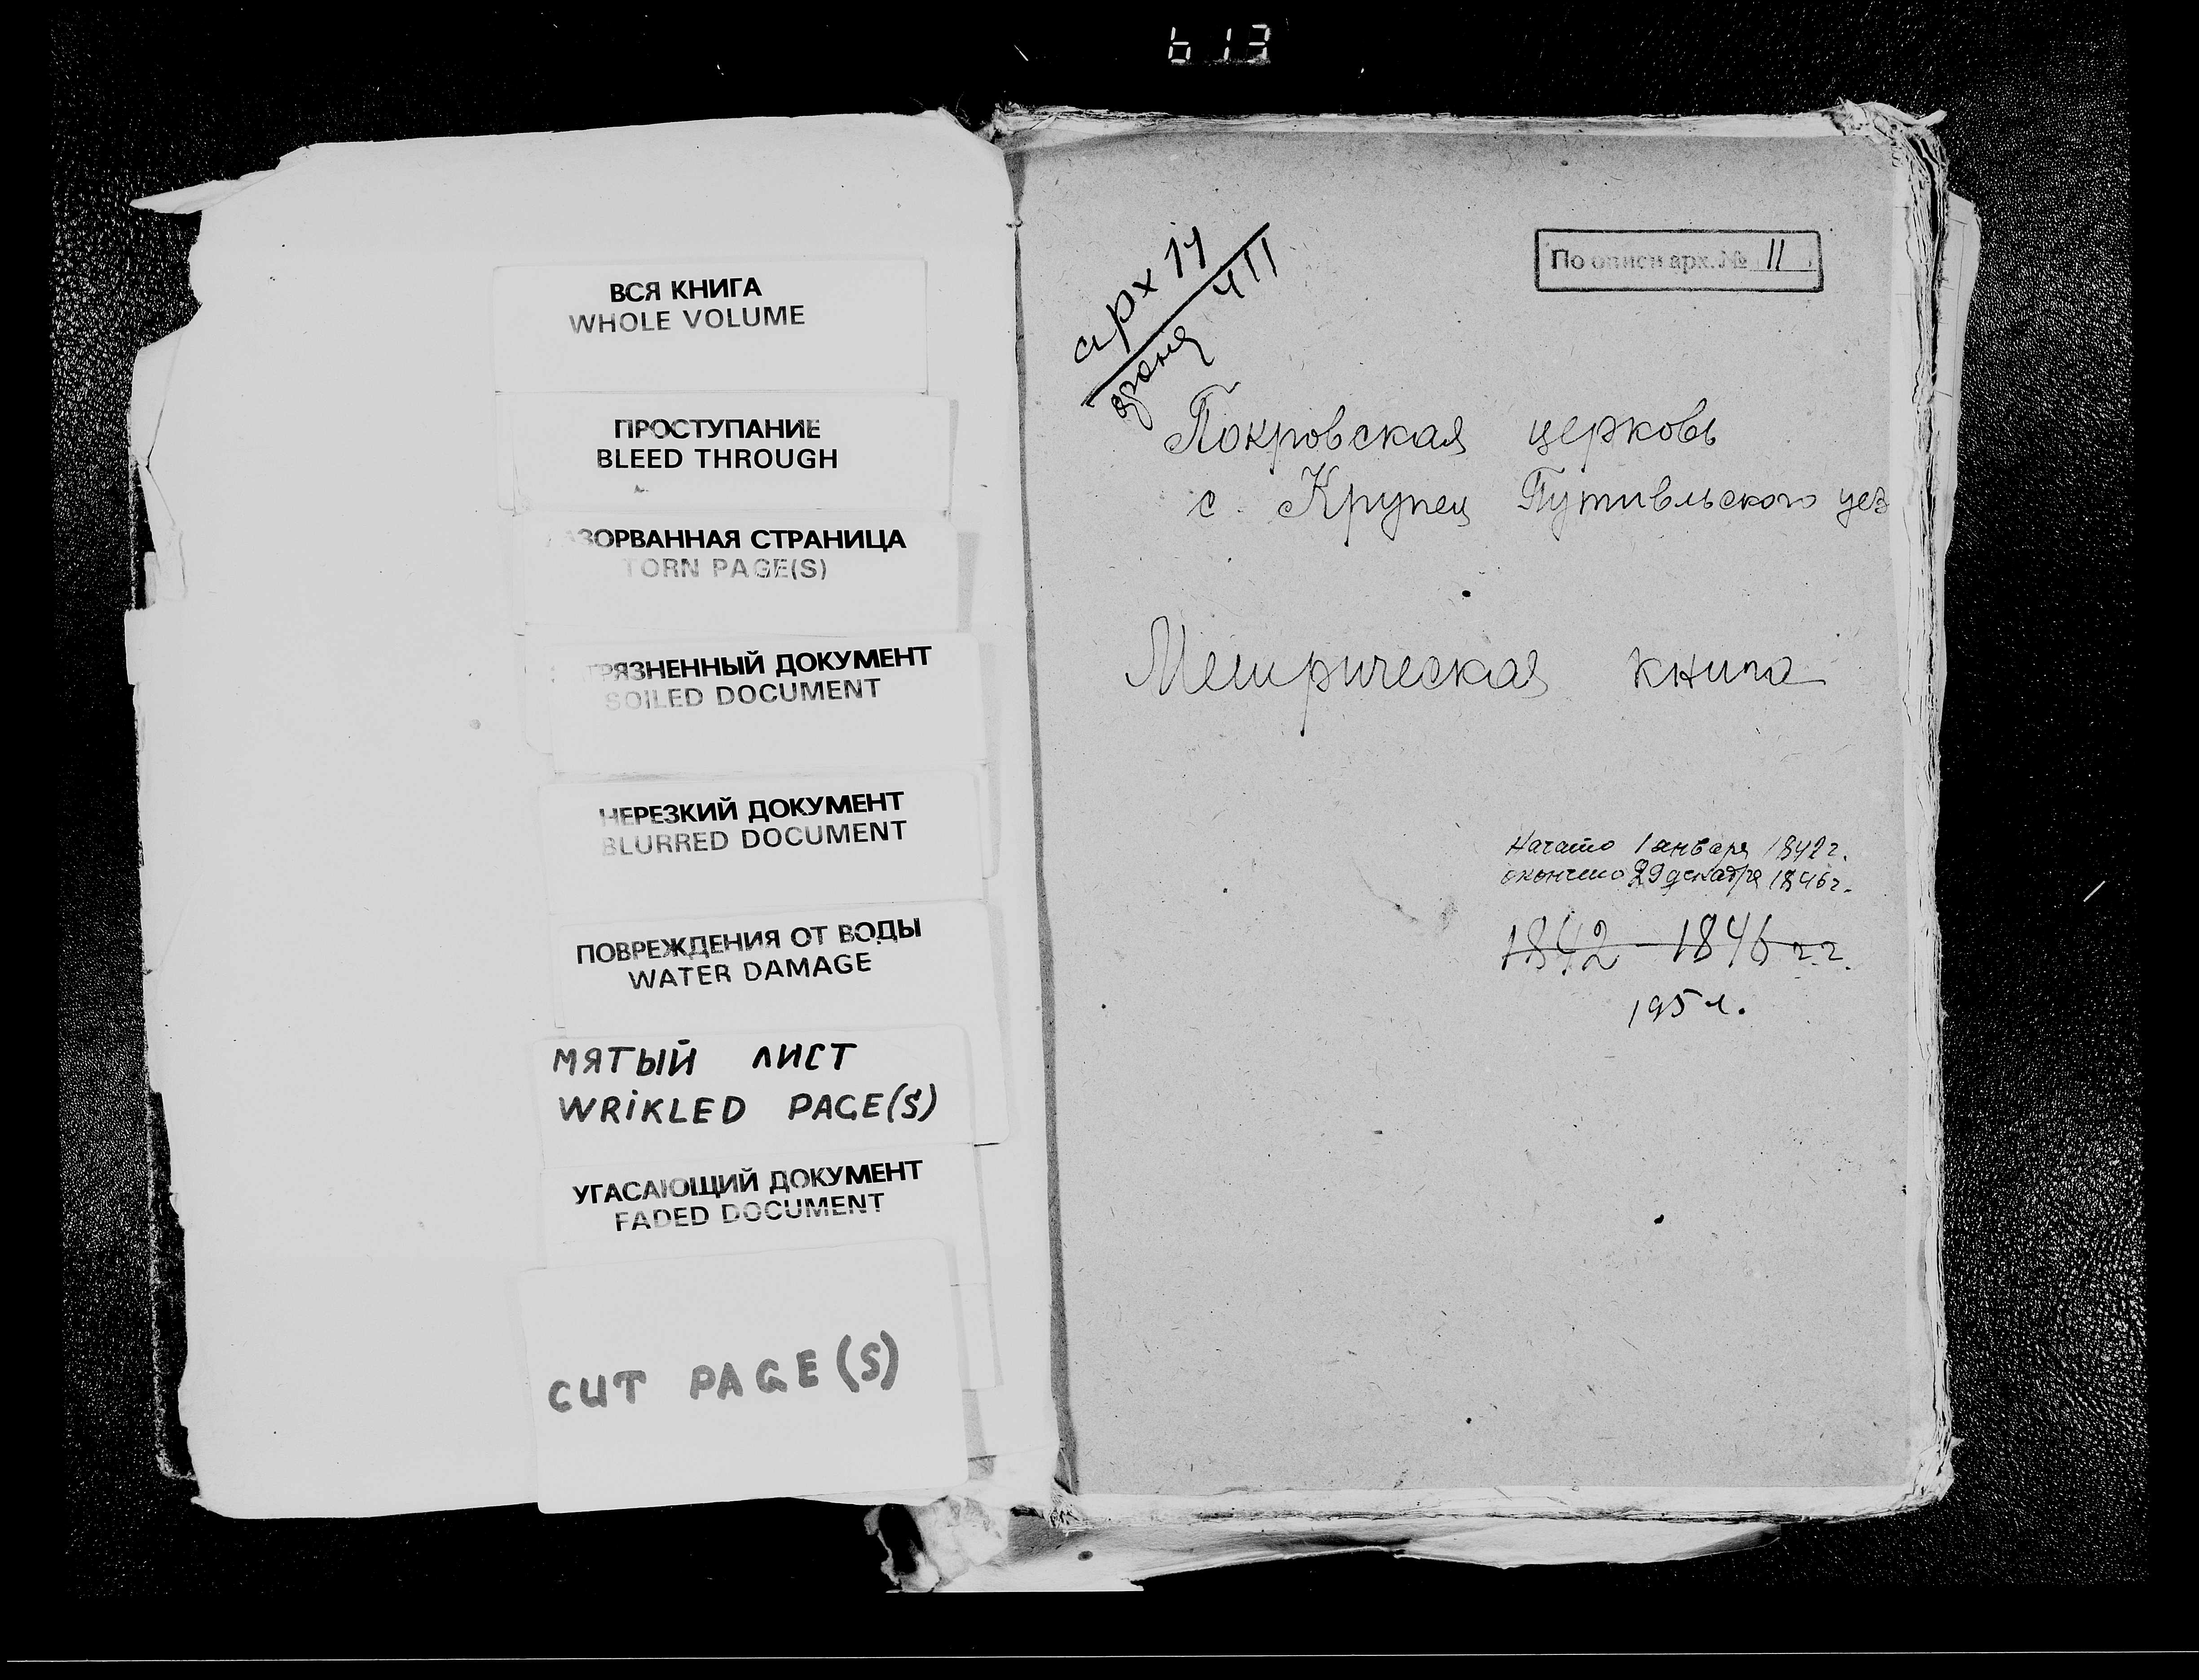 613
ВСЯ КНИГА
WHOLE VOLUME
ПРОСТУПАНИЕ
BLEED THROUGH
АЗОРВАННАЯ СТРАНИЦА
TORN PAGE(S)
ГРЯЗНЕННЫЙ ДОКУМЕНТ
SOILED DOCUMENT
НЕРЕЗКИЙ ДОКУМЕНТ
BLURRED DOCUMENT
ПОВРЕЖДЕНИЯ ОТ ВОДЫ
WATER DAMAGE
МЯТЫЙ ЛИСТ
WRIKLED PAGE(S)
УГАСАЮЩИЙ ДОКУМЕНТ
FADED DOCUMENT
CUT PAGE(S)
арх 14
По описи арх. № 11
Покровская церковь
с. Крупец Путивльского уез
Метрическая книга
Начато 1 января 1842 г.
окончено 29 декабря 1846 г.
1842 - 1846 г.г.
195 л.